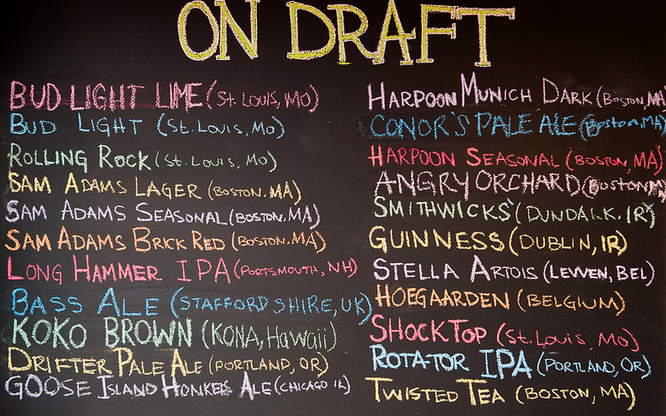 ON DRAFT
BUD LIGHT LIME (St. Louis, MO)
BUD LIGHT (St. Louis, Mo)
ROLLING ROCK (St. Louis, Mo)
SAM ADAMS LAGER (BOSTON, MA)
SAM ADAMS SEASONAL (BOSTON, MA)
SAM ADAMS BRICK RED (BOSTON, MA)
LONG HAMMER IPA (PORTSMOUTH, NH)
BASS ALE (STAFFORDSHIRE, UK)
KOKO BROWN (KONA, Hawaii)
DRIFTER PALE ALE (PORTLAND, OR)
GOOSE ISLAND HONKERS ALE (CHICAGO IL)
HARPOON MUNICH DARK (BOSTON, MA)
CONOR'S PALE ALE (Boston, MA)
HARPOON SEASONAL (BOSTON, MA)
ANGRY ORCHARD (BOSTON, MA)
SMITHWICKS' (DUNDALK, IR)
GUINNESS (DUBLIN, IR)
STELLA ARTOIS (LEVVEN, BEL)
HOEGAARDEN (BELGIUM)
SHOCK TOP (St. Louis, Mo)
ROTATOR IPA (PORTLAND, OR)
TWISTED TEA (BOSTON, MA)